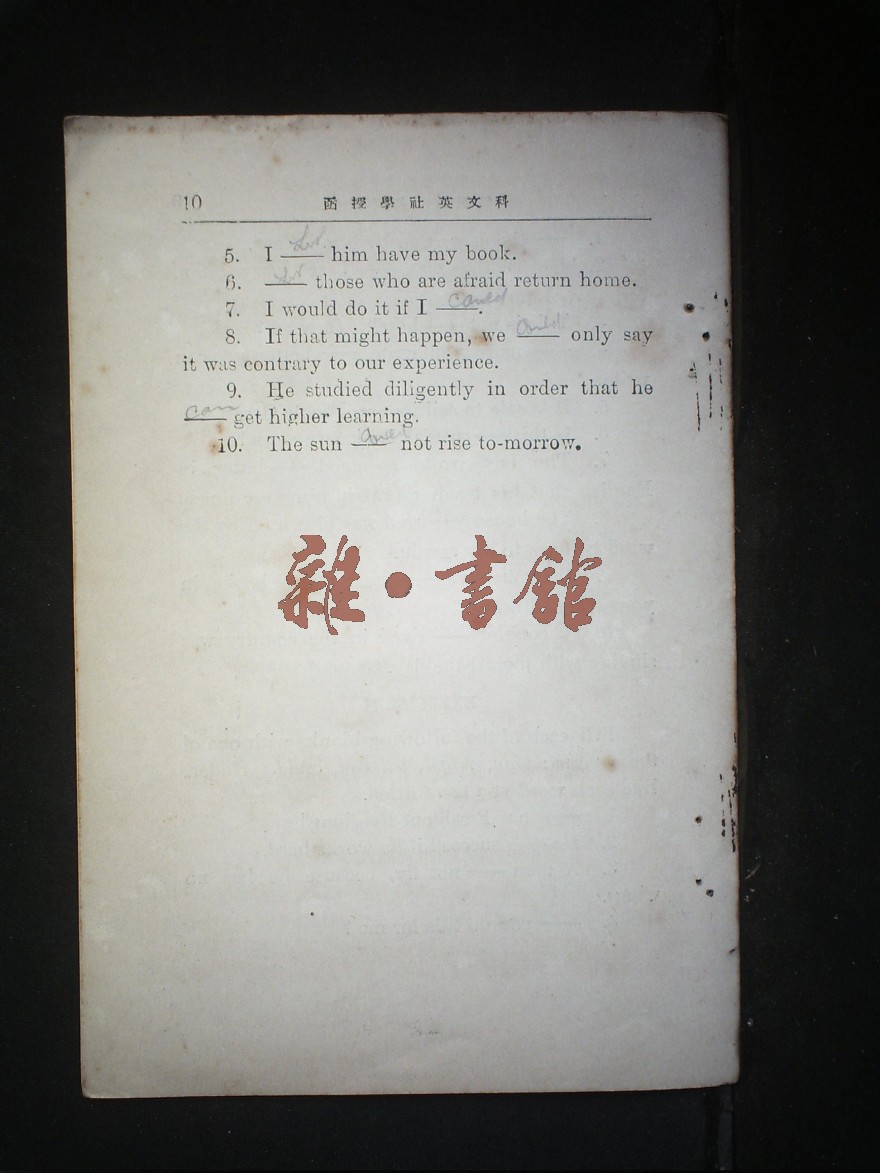 10 函授學社英文科
5. I Let him have my book.
6. Let those who are afraid return home.
7. I would do it if I could.
8. If that might happen, we could only say
it was contrary to our experience.
9. He studied diligently in order that he
can get higher learning.
10. The sun ___ not rise to-morrow.
雜·書館